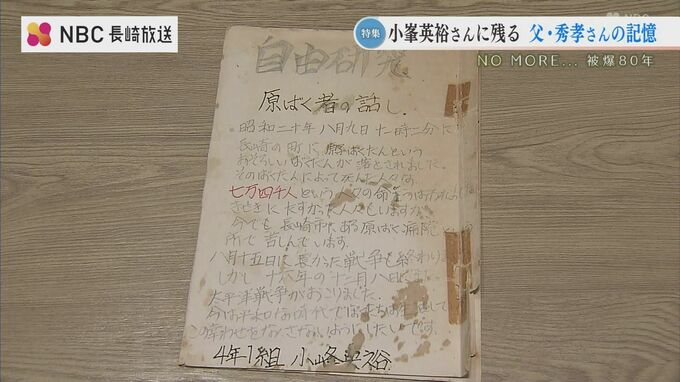 NBC 長崎放送
特集 小峯英裕さんに残る 父・秀孝さんの記憶
NO MORE... 被爆80年
自由研究
原ばく者の話し
昭和二十年八月九日十一時二分に
長崎の町に、原ばくだんという
おそろしいばくだんが落とされました。
そのばくだんによって
七万四千人という人々の命
きせきにたすかった人々も
今でも長崎市にある原ばく病院
所で苦しんでいます。
八月十五日に長かった戦争も終わりま
しかし十六年の十二月八日
太平洋戦争がおこりました。
ようにしたいです。
4年1組 小峰英裕